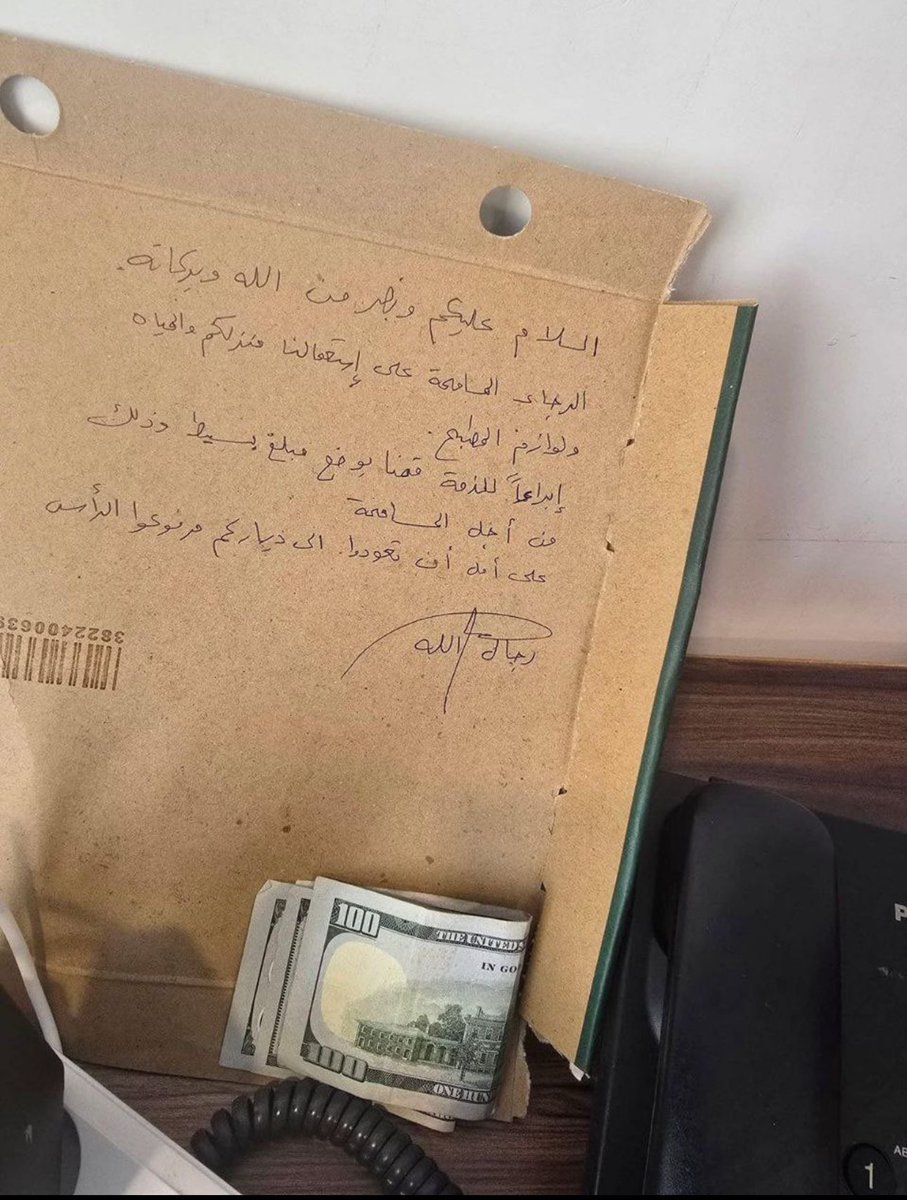 السلام عليكم ونصر من الله وبركاته.
الرجاء المسامحة على إستعمالنا منزلكم والمياه
ولوازم المطبخ.
إبراءاً للذمة قمنا بوضع مبلغ بسيط وذلك
من أجل المسامحة
على أمل أن تعودوا الى دياركم مرفوعوا الرأس
رجال الله
3822400639
100
THE UNITED
IN GO
100
ONE HUN
P
AB
1